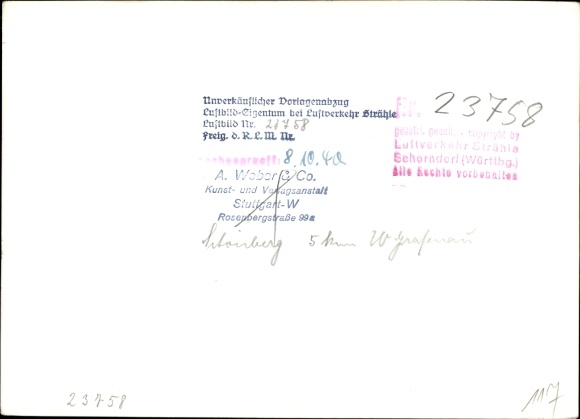 Unverkäuflicher Vorlagenabzug
Luftbild-Eigentum bei Luftverkehr Strähle
Luftbild Nr. 23758
Freig. d. R. L. M. Nr.
8.10.40
A. Weber & Co.
Kunst- und Verlagsanstalt
Stuttgart-W
Rosenbergstraße 99a
Nr. 23758
gesch. Copyright by
Luftverkehr Strähle
Schorndorf (Württbg.)
Alle Rechte vorbehalten
Schönberg 5 km W Grafenau
23758
117